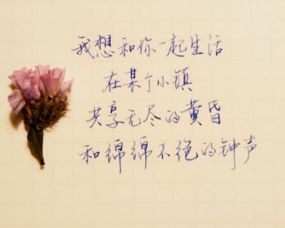 我想和你一起生活
在某个小镇
共享无尽的黄昏
和绵绵不绝的钟声